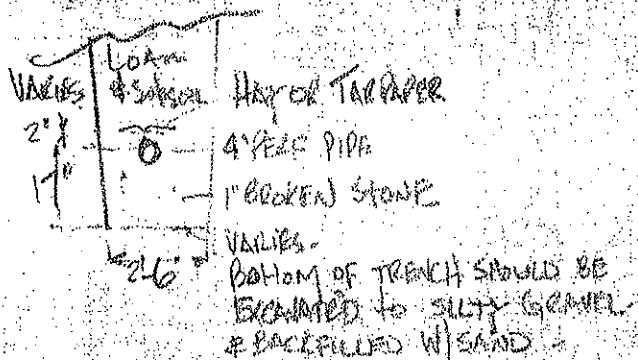 LOAM
VARIES & SUBSOIL HAY OR TARPAPER
2"
4" PERF PIPE
1" BROKEN STONE
VARIES.
BOTTOM OF TRENCH SHOULD BE
EXCAVATED TO SILTY GRAVEL
& BACKFILLED W/ SAND